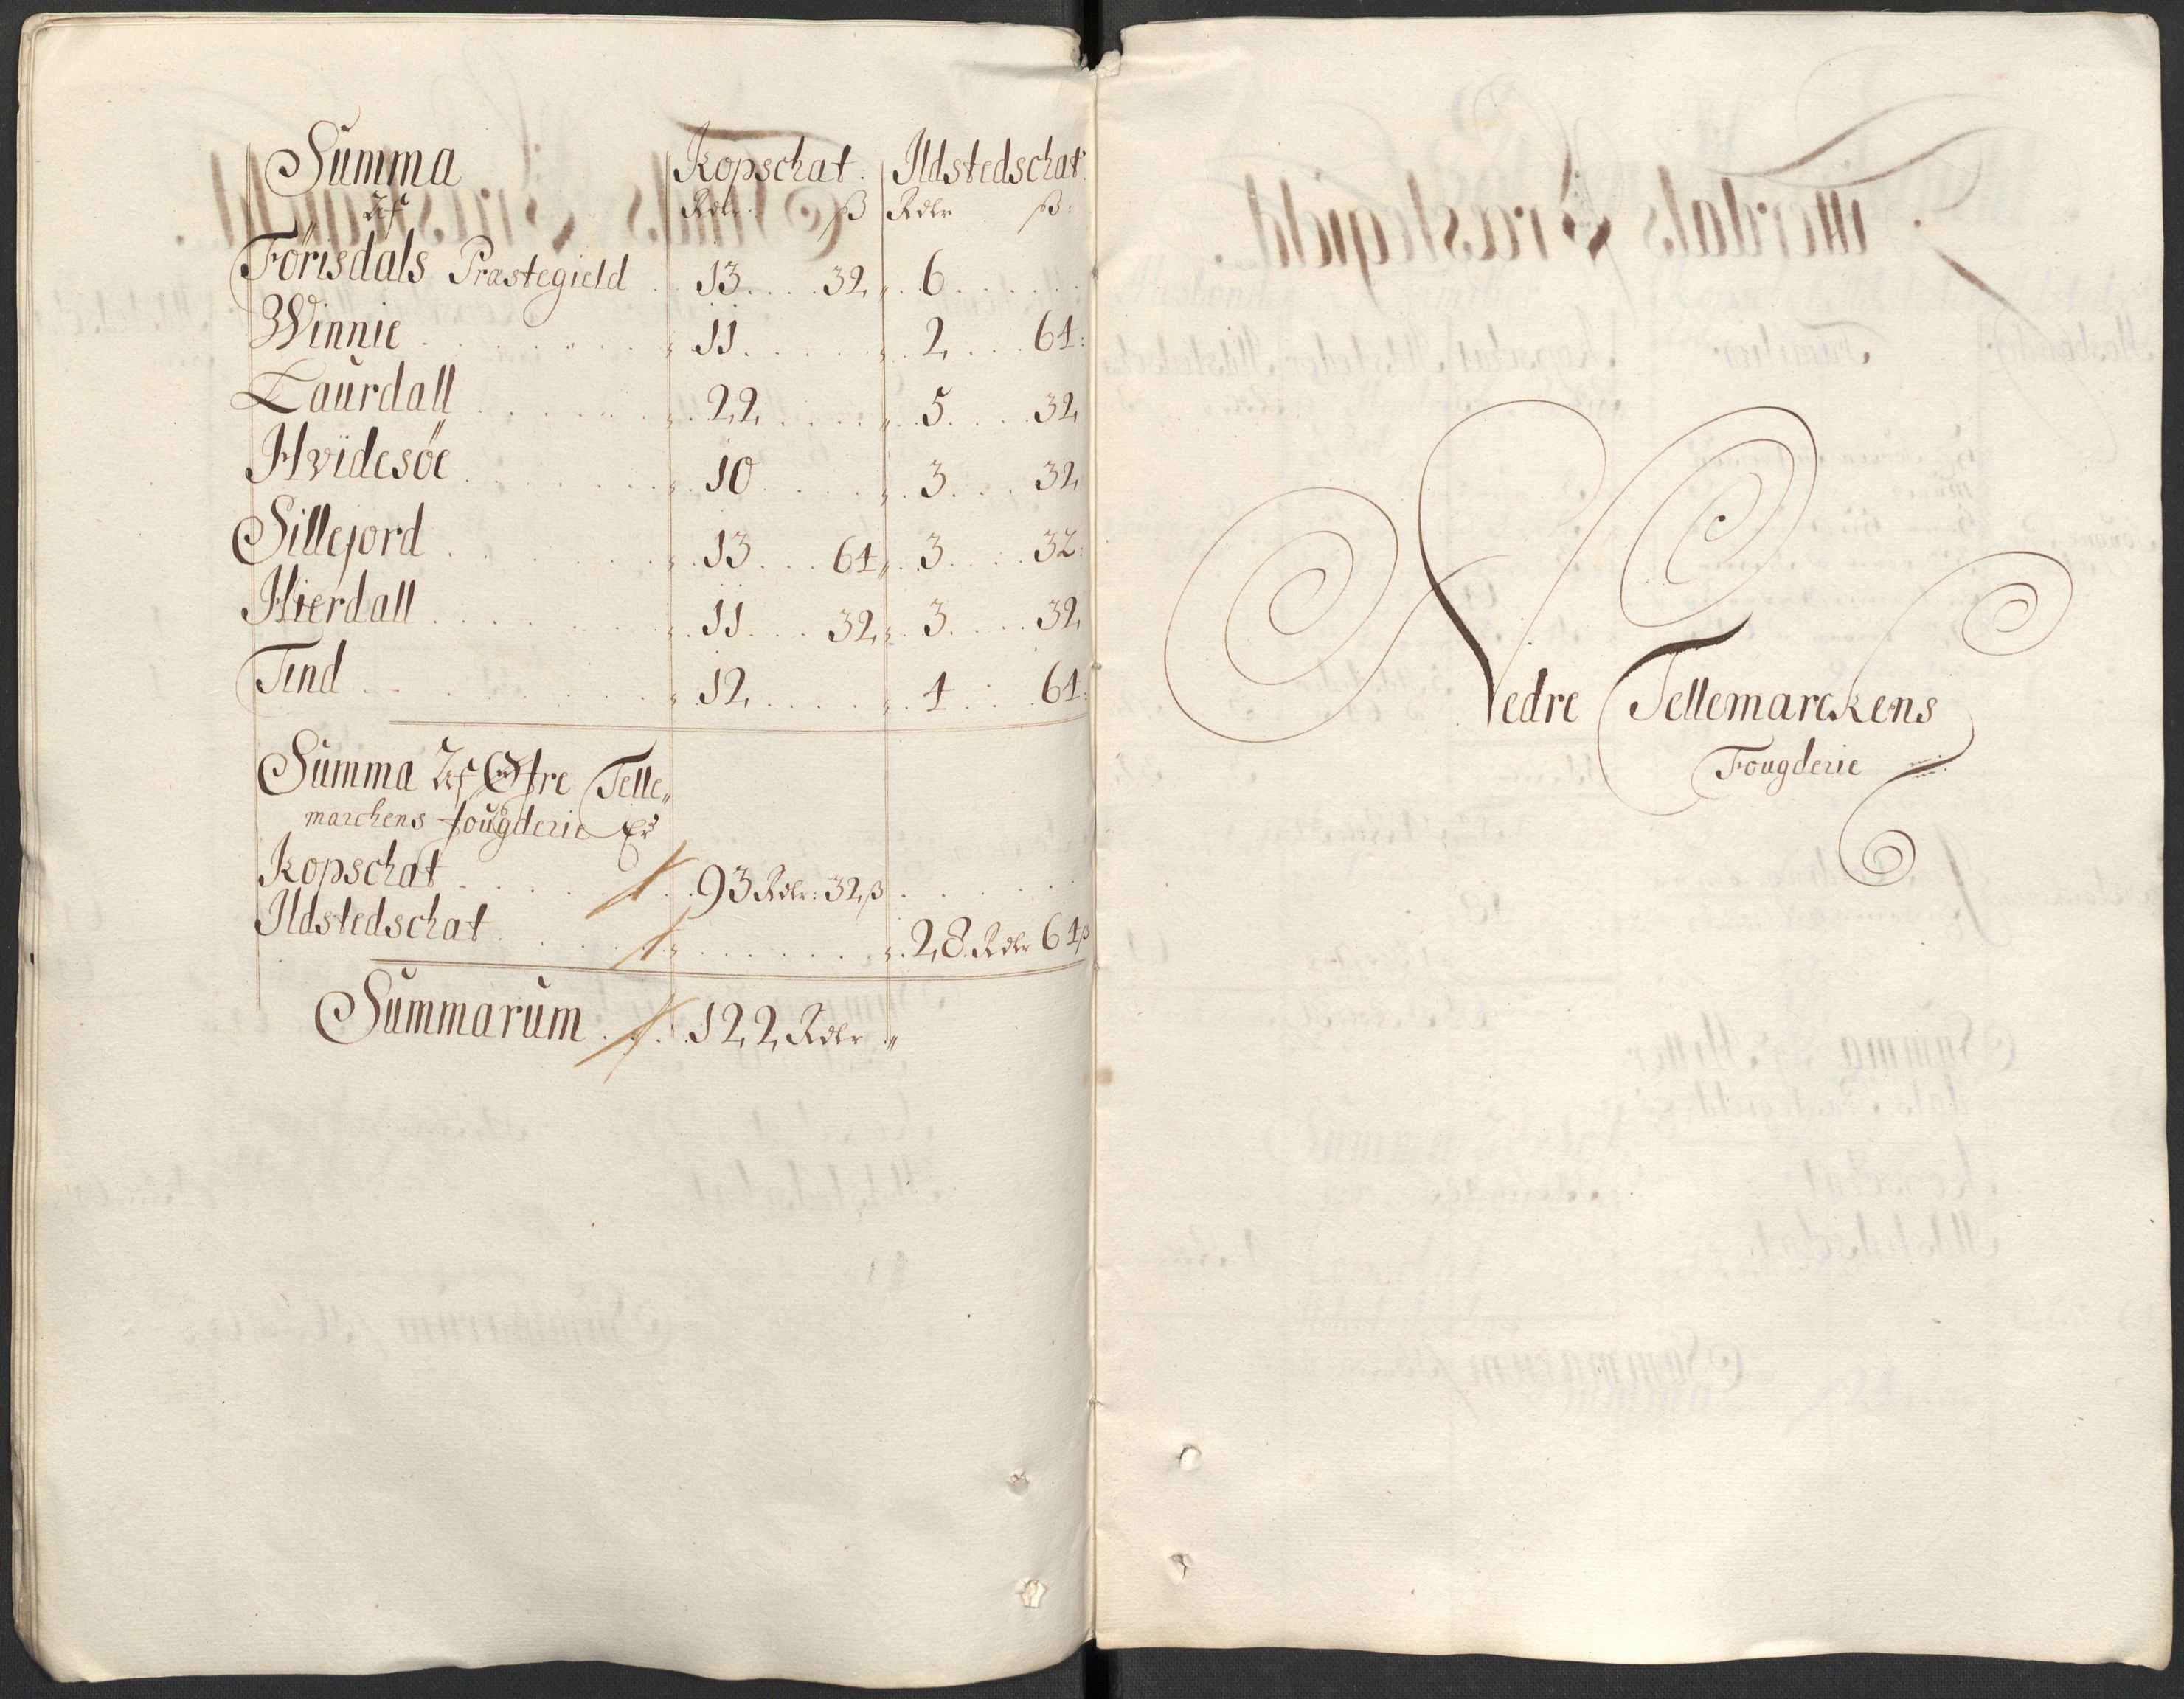 Summa Kopschat. Ildstedschat.
Af Rdlr ß Rdlr ß:
Förisdals Prastegield . . 13 . . . . 32 „ . . 6 . . . . . .
Winnie . . . . „ . 11 . . . . „ . . 2 . . . 64:
Laurdall . . . . „ . 22 . . . . „ . . 5 . . . 32
Hvidesöe . . . . „ . 10 . . . . „ . . 3 . . . 32
Sillejord . . . . „ . 13 . . . 64 „ . . 3 . . . 32:
Hierdall . . . . „ . 11 . . . 32 „ . . 3 . . . 32
Tind . . . . „ . 12 . . . . „ . . 4 . . . 64:
Summa Af Øfre Telle„
marchens fougderie Er
Kopschat . . . . 93 Rdlr: 32 ß . . . .
Ildstedschat . . . . „ . . . . „ . 28 Rdlr 64 ß
Summarum . . . 122 Rdlr „
Nedre Tellemarckens
Fougderie